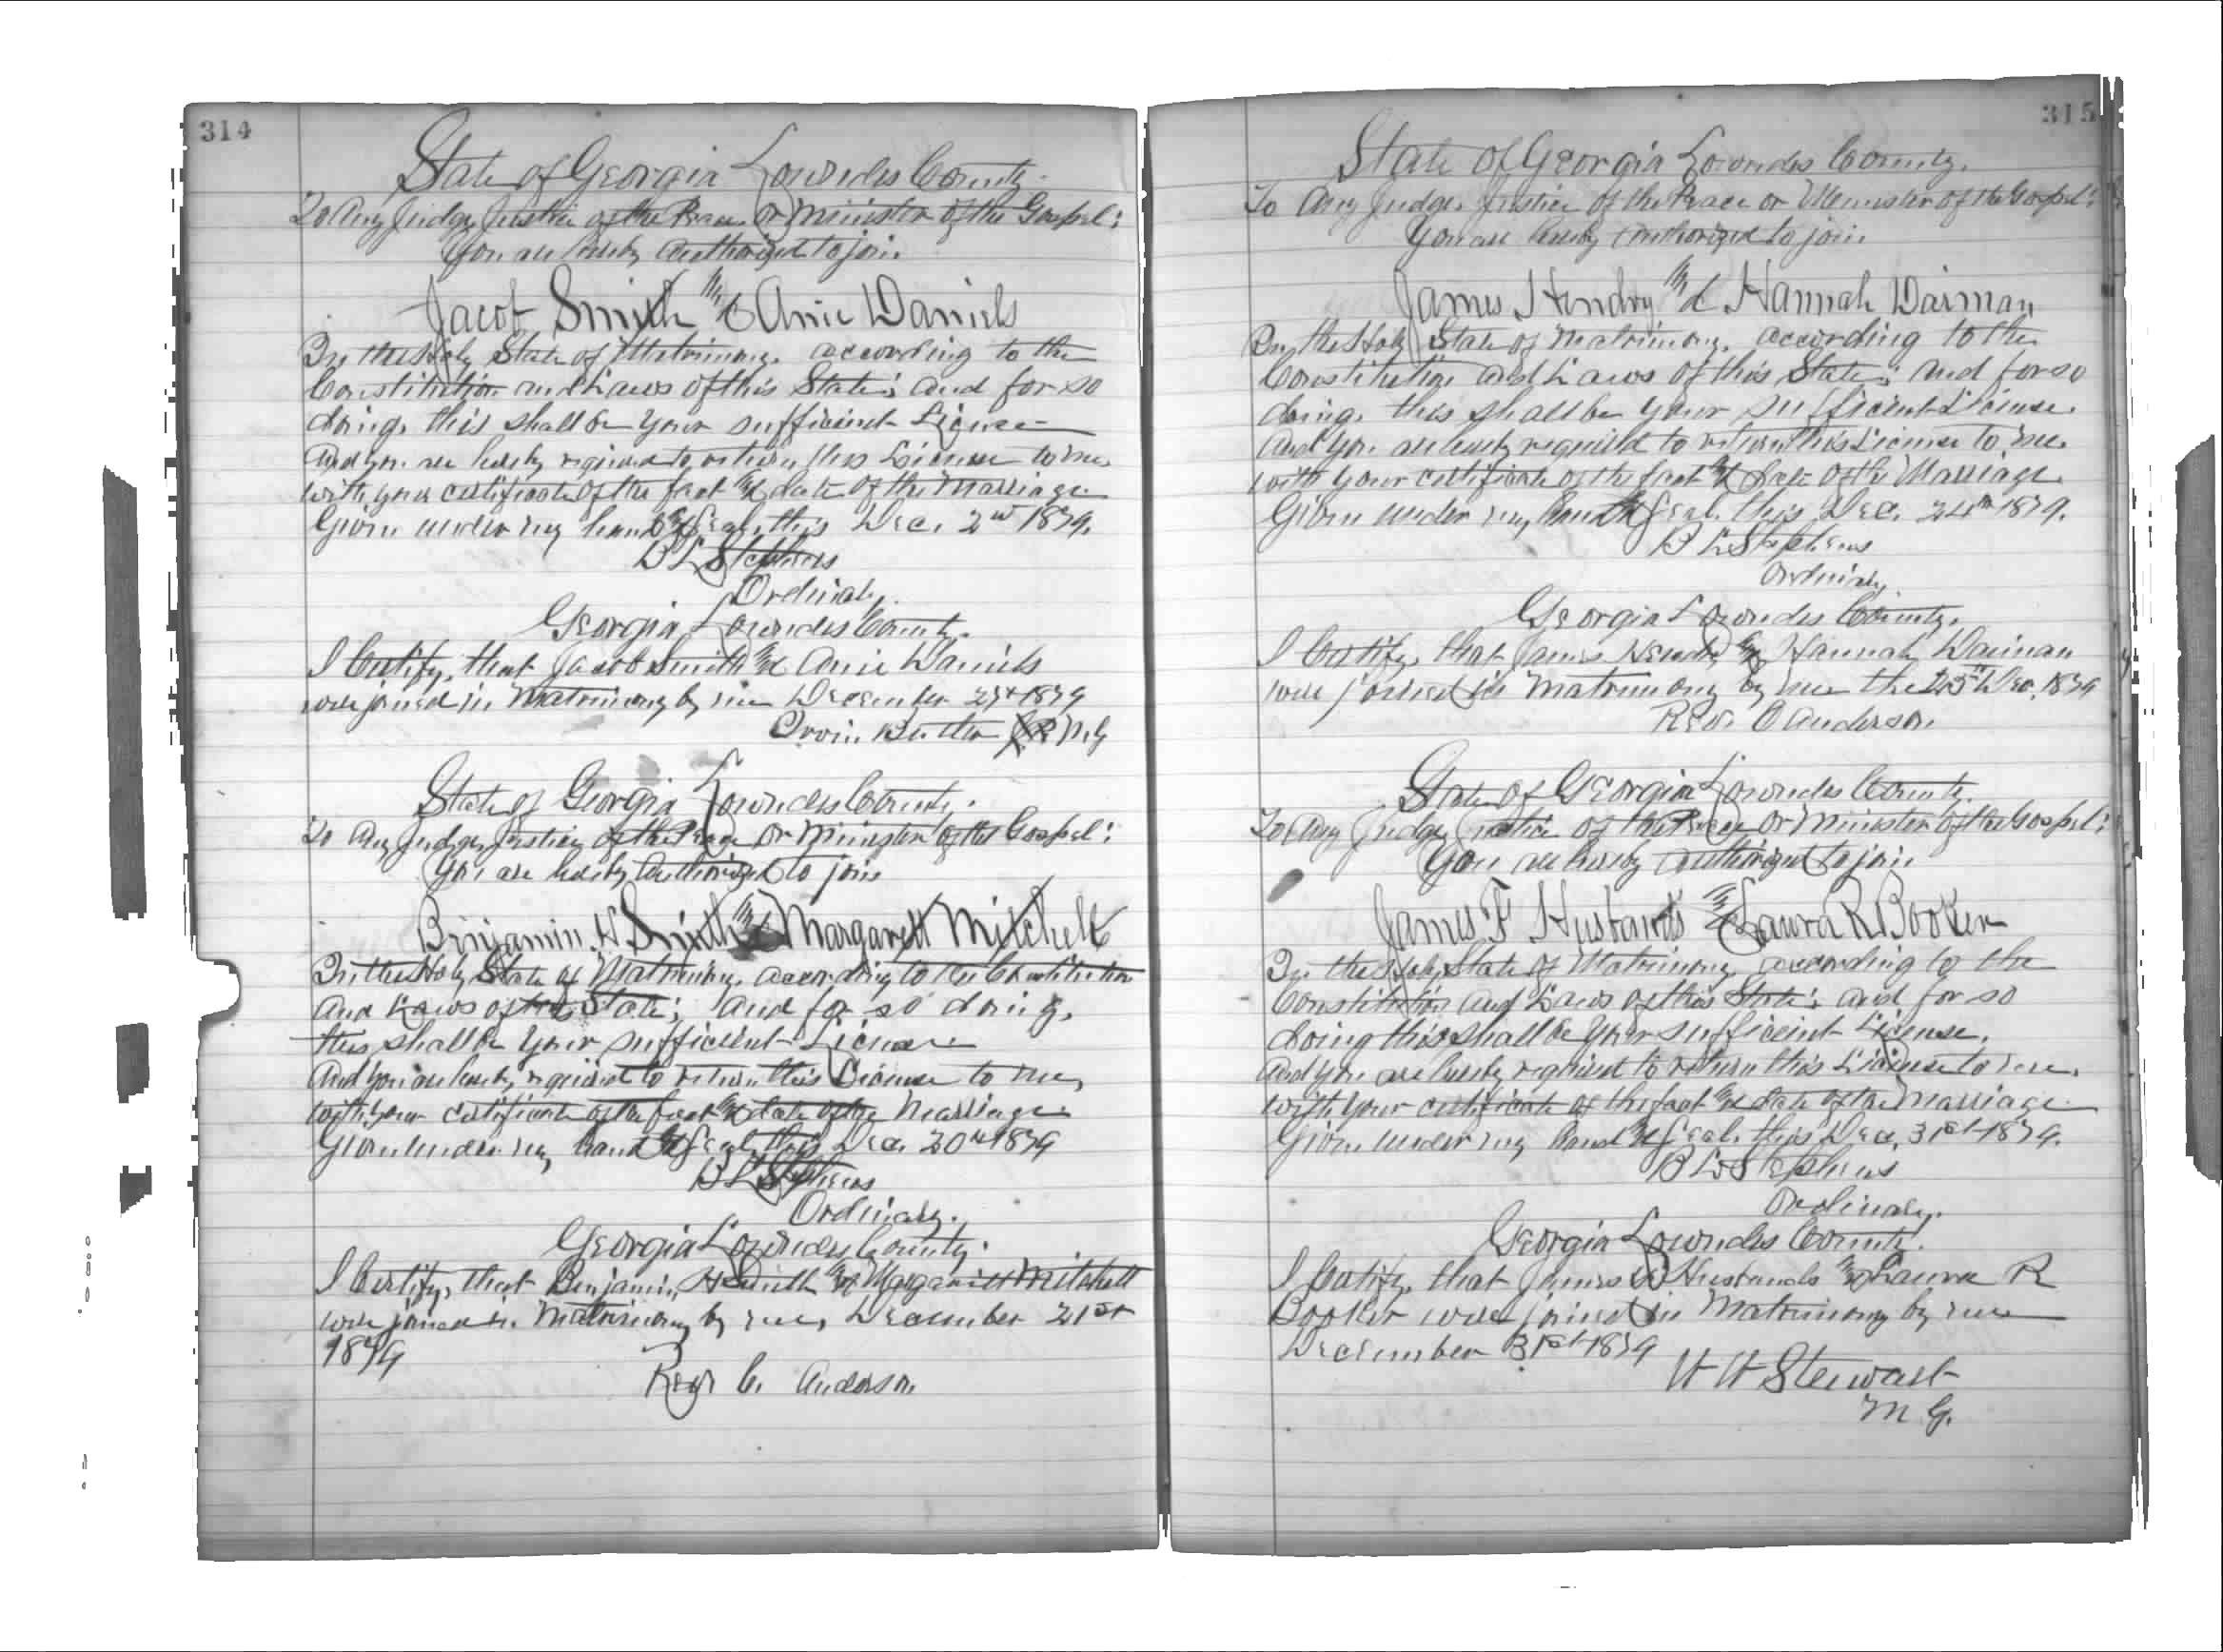 314
State of Georgia Lowndes County.
To Any Judge, Justice of the Peace or Minister of the Gospel:
You are hereby authorized to join
Jacob Smith & Anie Daniels
In the Holy State of Matrimony, according to the
Constitution and Laws of this State; and for so
doing, this shall be your sufficient License
And you are hereby required to return this License to me,
with your certificate of the fact & date of the Marriage
Given under my hand & Seal, this Dec. 2nd 1879.
B L Stephens
Ordinary.
Georgia Lowndes County.
I Certify, that Jacob Smith & Anie Daniels
were joined in Matrimony by me December 1879
Irvin M G
State of Georgia Lowndes County.
To Any Judge, Justice of the Peace or Minister of the Gospel:
You are hereby authorized to join
Benjamin H Smith & Margarett Mitchell
In the Holy State of Matrimony, according to the Constitution
and Laws of this State; and for so doing,
this shall be your sufficient License
And you are hereby required to return this License to me,
with your certificate of the fact & date of the Marriage
Given under my hand & Seal, this Dec. 20th 1879
B L Stephens
Ordinary.
Georgia Lowndes County.
I Certify, that Benjamin H Smith & Margarett Mitchell
were joined in Matrimony by me, December 21st
1879
Revr C. Anderson
315
State of Georgia Lowndes County.
To Any Judge, Justice of the Peace or Minister of the Gospel:
You are hereby authorized to join
James Hendry & Hannah Dairman
In the Holy State of Matrimony, according to the
Constitution and Laws of this State; and for so
doing, this shall be your sufficient License.
And you are hereby required to return this License to me
with your certificate of the fact & date of the Marriage.
Given under my hand & Seal, this Dec. 24th 1879.
B L Stephens
Ordinary
Georgia Lowndes County.
I Certify, that James Hendry & Hannah Dairman
were joined in Matrimony by me the 25th Dec. 1879
Revr. C Anderson
State of Georgia Lowndes County
To Any Judge, Justice of the Peace or Minister of the Gospel:
You are hereby authorized to join
James F Husbands & Laura R Booker
In the Holy State of Matrimony, according to the
Constitution and Laws of this State; and for so
doing this shall be your sufficient License.
And you are hereby required to return this License to me,
with your certificate of the fact & date of the Marriage
Given under my hand & Seal, this Dec, 31st 1879.
B L Stephens
Ordinary.
Georgia Lowndes County.
I Certify, that James Husbands & Laura R
Booker were joined in Matrimony by me
December 31st 1879
W W Stewart
M G.